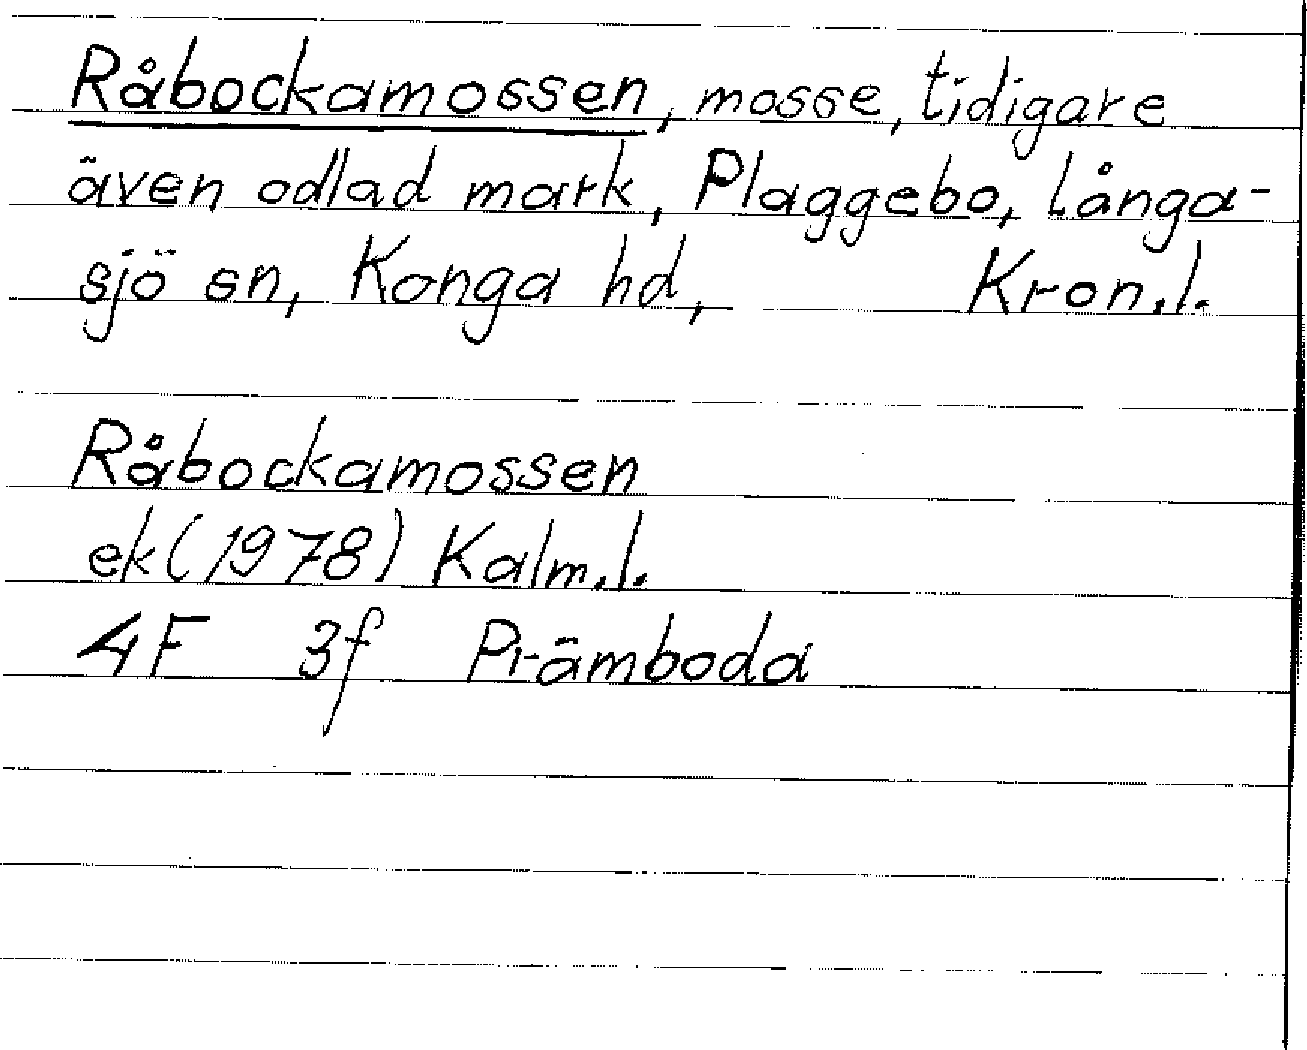 Råbockamossen, mosse, tidigare
även odlad mark, Plaggebo, Långa-
sjö sn, Konga hd, Kron.l.
Råbockamossen
ek(1978) Kalm.l.
4F 3f Prämboda